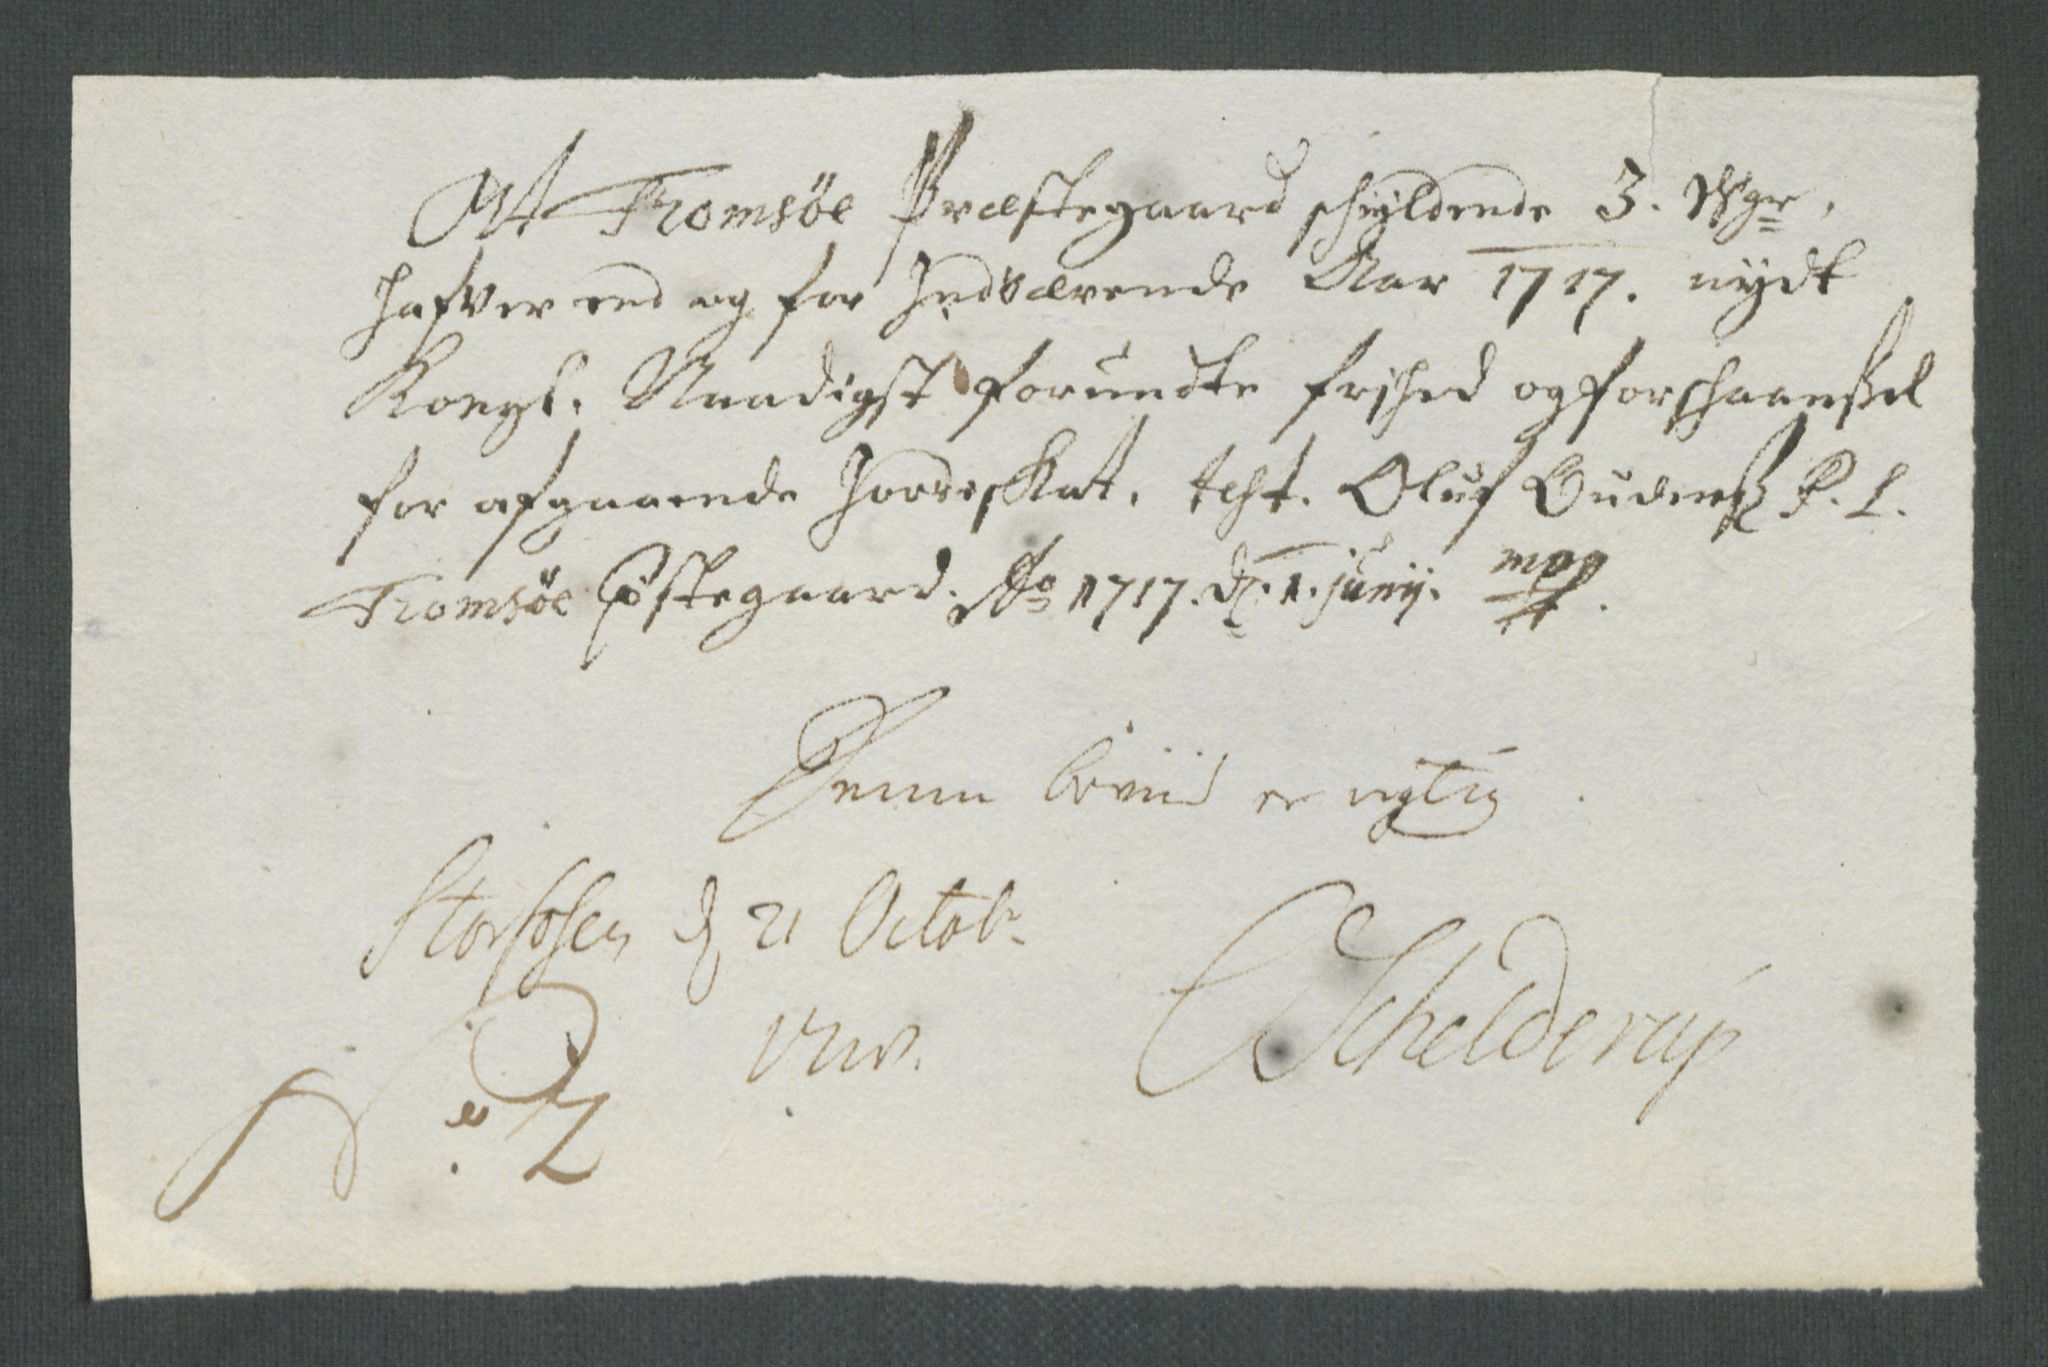 At Tromsöe Præstegaard schyldende 3. Wger,
hafver end og for Indværende Aar 1717. nydt
Kongl. Naadigst forundte frihed og forschaanßel
for afgaaende JordesKat, teht. Oluf P. L.
Tromsöe Præstegaard. Ao 1717. d. 1. junij. mpp.
Denne beviis er rigtig.
d 21 Octobr
1717.
Schelderup